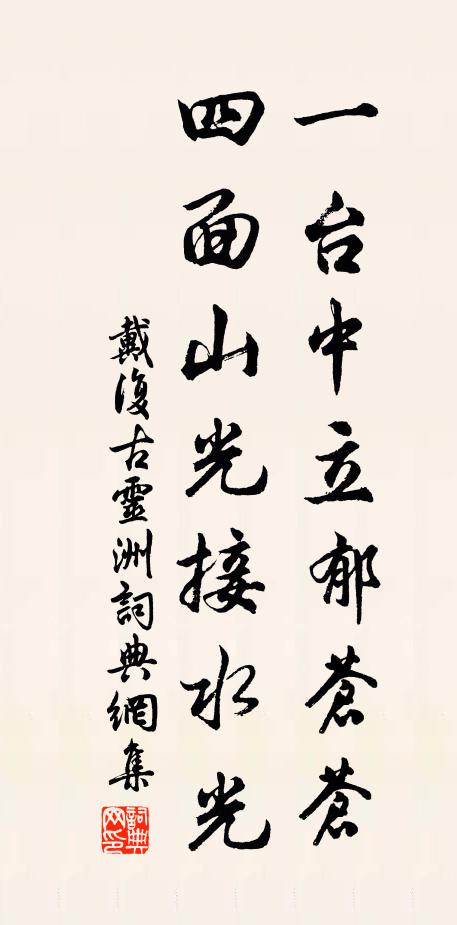 一台中立郁蒼蒼
四面山光接水光
戴復古靈洲詞典網集
詞典
网印